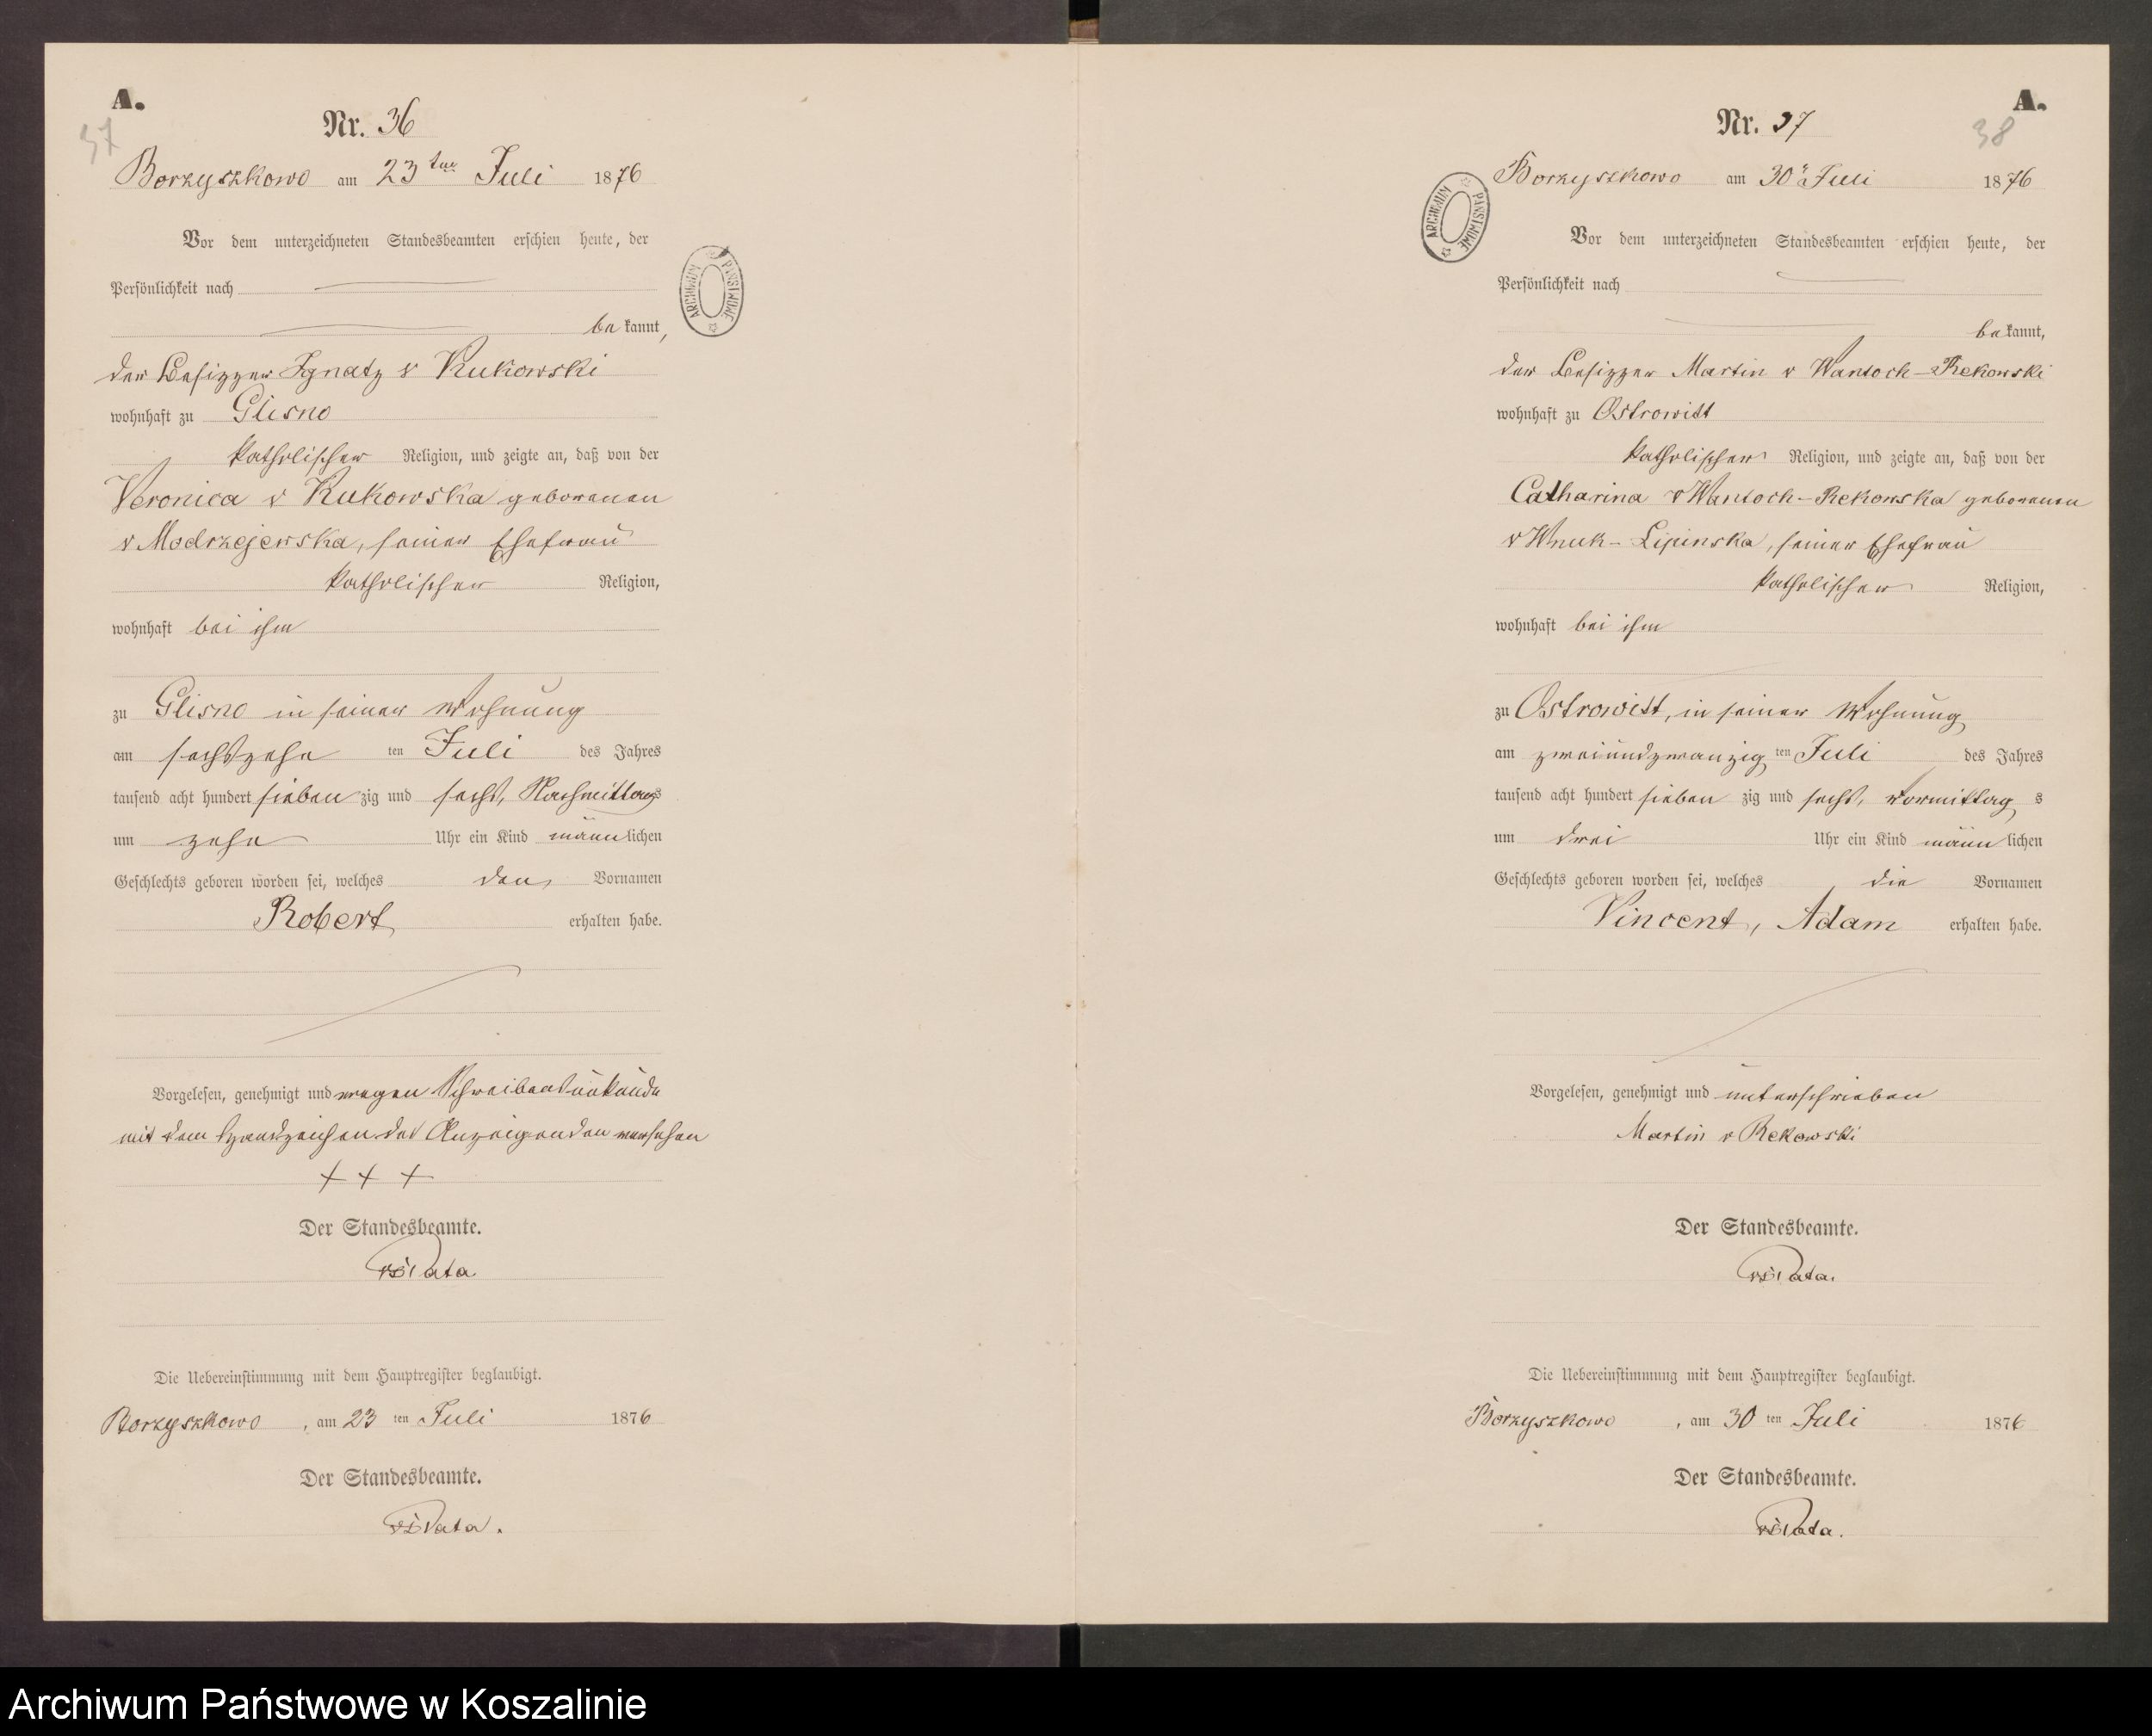 A.
37
Nr. 36
Borzyszkowo am 23ten Juli 1876
Vor dem unterzeichneten Standesbeamten erschien heute, der
Persönlichkeit nach
be kannt,
der Besitzer Ignatz v Kukowski
wohnhaft zu Glisno
katholischer Religion, und zeigte an, daß von der
Veronica v Kukowska geborenen
v Modrzejewska, seiner Ehefrau
katholischer Religion,
wohnhaft bei ihm
zu Glisno in seiner Wohnung
am sechszehn ten Juli des Jahres
tausend acht hundert sieben zig und sechs, Nachmittags
um zehn Uhr ein Kind männlichen
Geschlechts geboren worden sei, welches den Vornamen
Robert erhalten habe.
Vorgelesen, genehmigt und wegen Schreibensunkunde
mit dem Handzeichen des Anzeigenden versehen
+ + +
Der Standesbeamte.
Pata
Die Uebereinstimmung mit dem Hauptregister beglaubigt.
Borzyszkowo, am 23 ten Juli 1876
Der Standesbeamte.
Pata.
ARCHIWUM PAŃSTWOWE
A.
38
Nr. 37
Borzyszkowo am 30n Juli 1876
Vor dem unterzeichneten Standesbeamten erschien heute, der
Persönlichkeit nach
bekannt,
der Besitzer Martin v Wantoch-Rekowski
wohnhaft zu Ostrowitt
katholischer Religion, und zeigte an, daß von der
Catharina v Wantoch-Rekowska geborenen
v Wnuk-Lipinska, seiner Ehefrau
katholischer Religion,
wohnhaft bei ihm
zu Ostrowitt, in seiner Wohnung
am zweiundzwanzig ten Juli des Jahres
tausend acht hundert sieben zig und sechs, vormittag s
um drei Uhr ein Kind männlichen
Geschlechts geboren worden sei, welches die Vornamen
Vincent, Adam erhalten habe.
Vorgelesen, genehmigt und unterschrieben
Martin v Rekowski
Der Standesbeamte.
Pata.
Die Uebereinstimmung mit dem Hauptregister beglaubigt.
Borzyszkowo, am 30 ten Juli 1876
Der Standesbeamte.
Pata.
ARCHIWUM PAŃSTWOWE
Archiwum Państwowe w Koszalinie